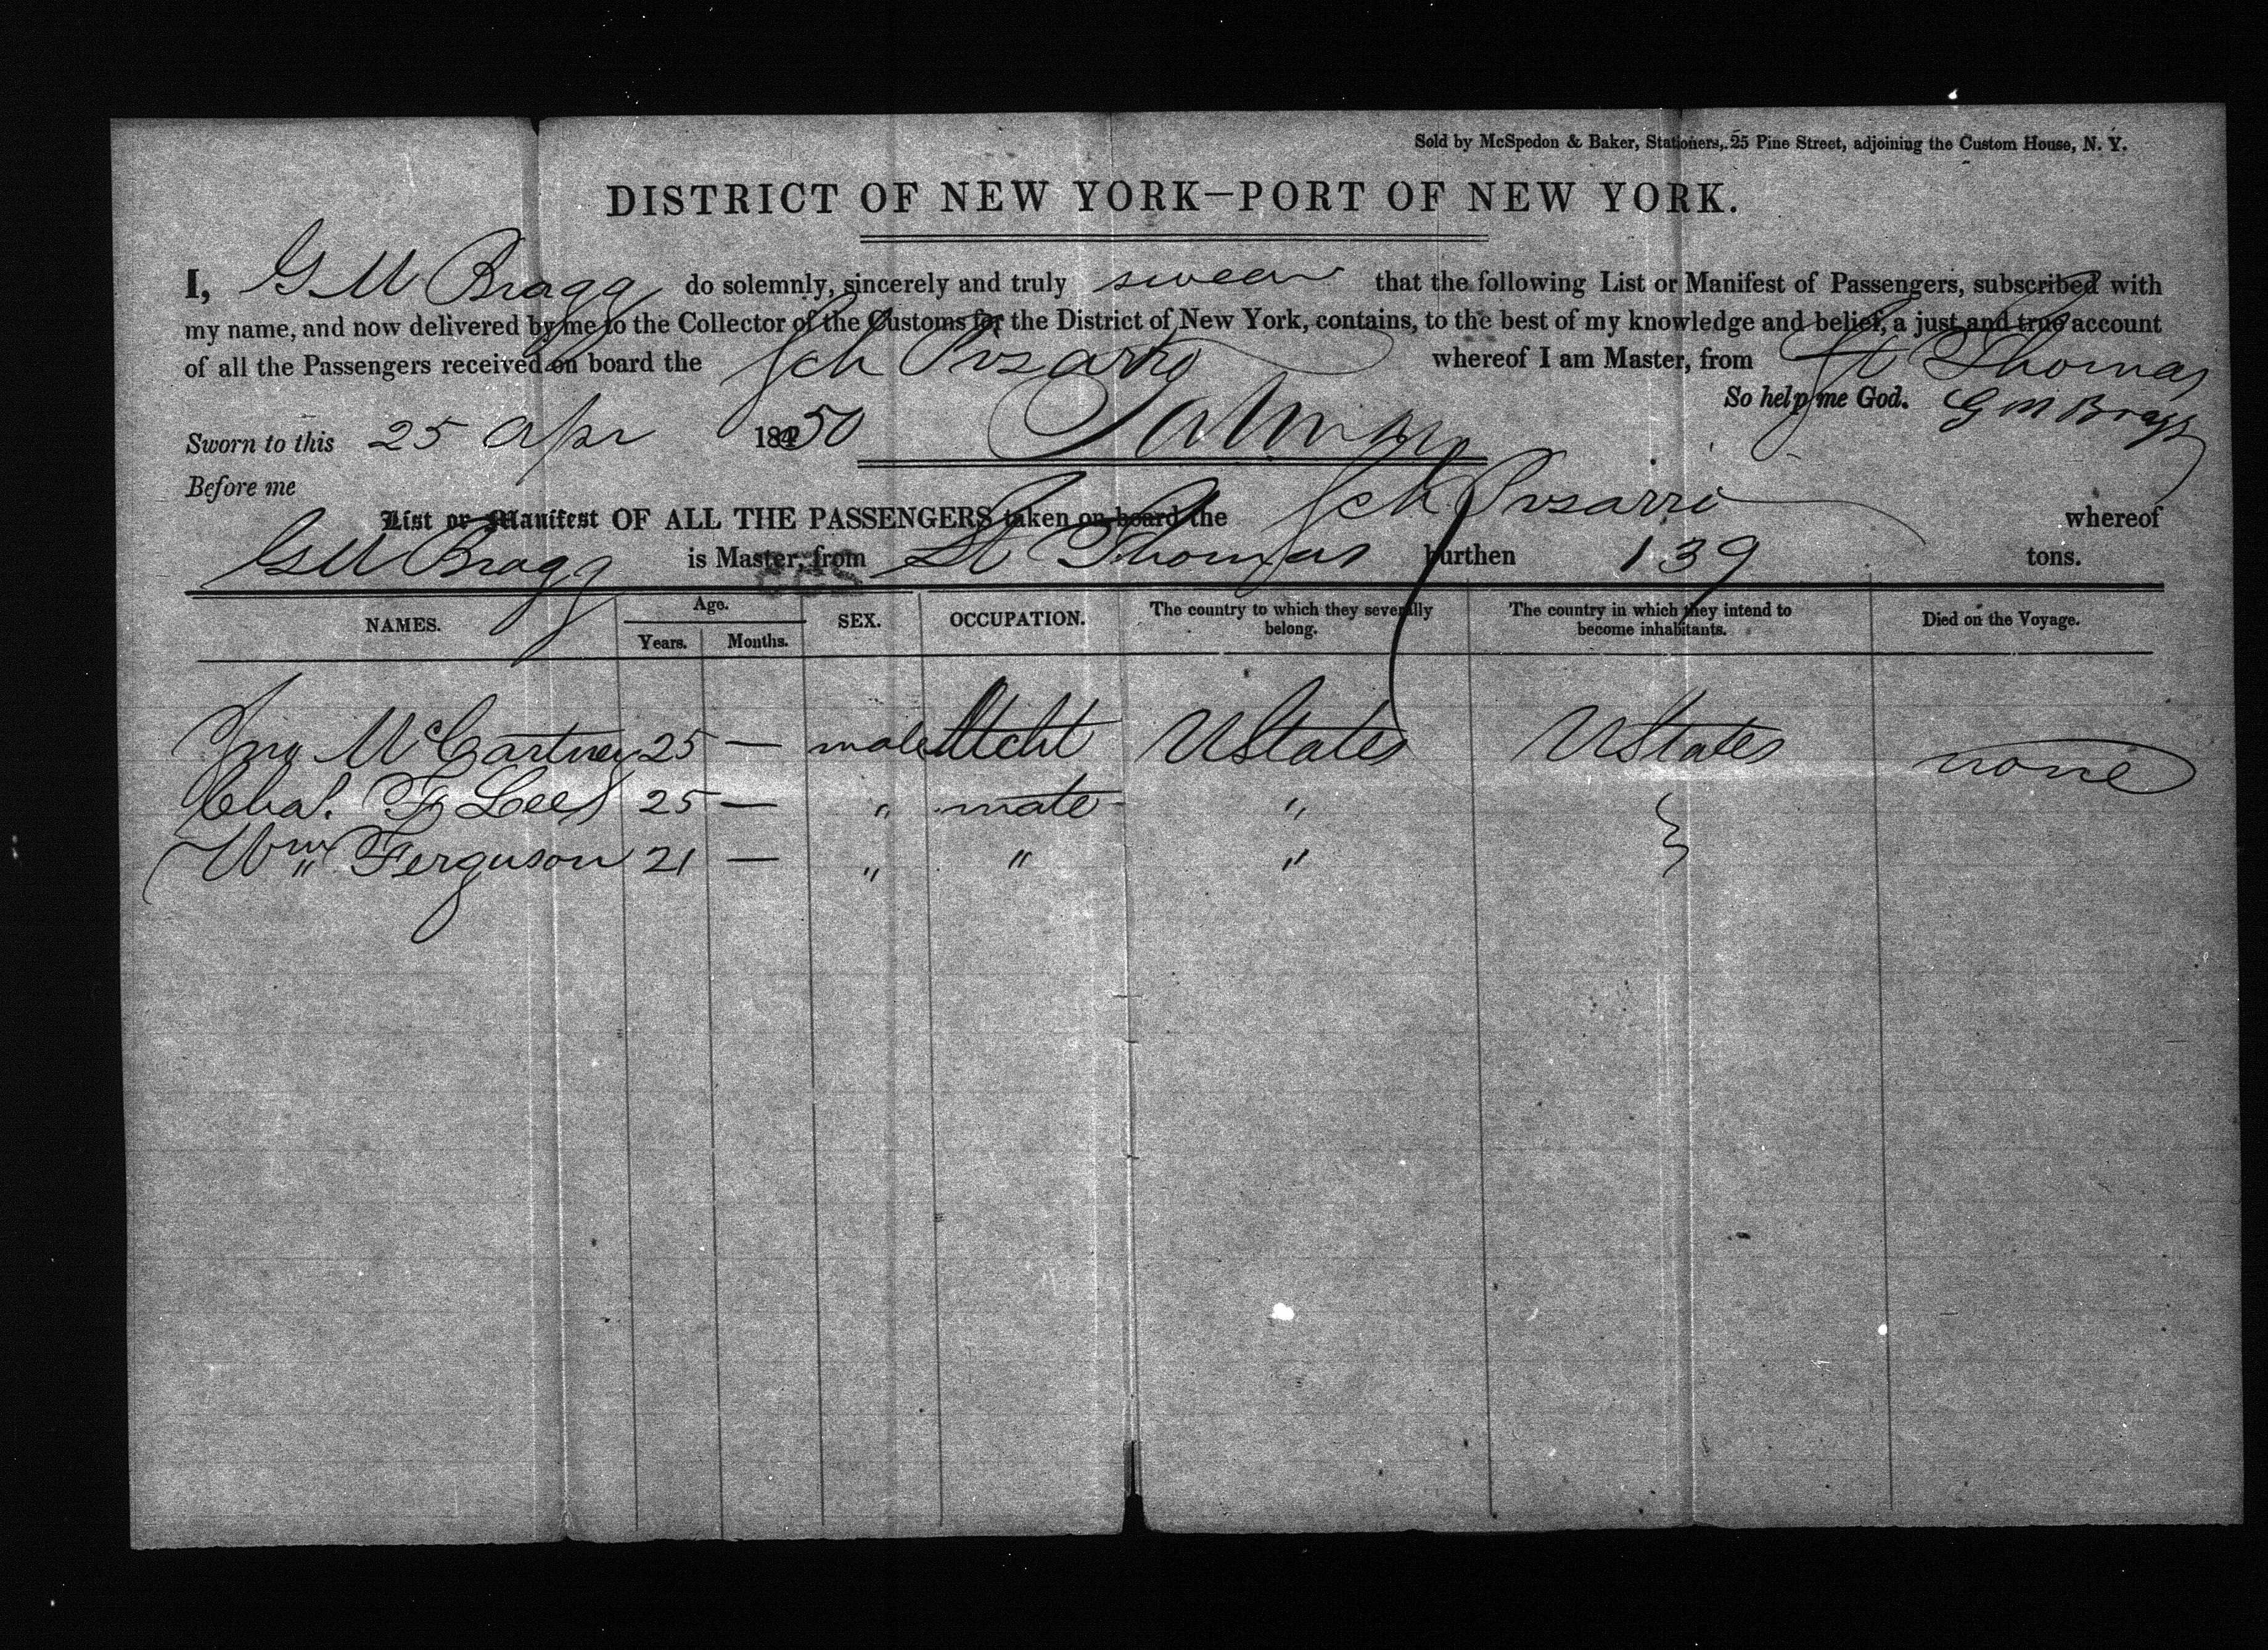 Sold by McSpedon & Baker, Stationers, 25 Pine Street, adjoining the Custom House, N. Y.
DISTRICT OF NEW YORK—PORT OF NEW YORK.
I, G M Bragg do solemnly, sincerely and truly swear that the following List or Manifest of Passengers, subscribed with
my name, and now delivered by me to the Collector of the Customs for the District of New York, contains, to the best of my knowledge and belief, a just and true account
of all the Passengers received on board the Sch whereof I am Master, from St Thomas
So help me God. G M Bragg
Sworn to this 25 Apr 1850
Before me
List or Manifest OF ALL THE PASSENGERS taken on board the Sch whereof
G M Bragg is Master, from St Thomas burthen 139 tons.
NAMES. Age. Years. Months. SEX. OCCUPATION. The country to which they severally belong. The country in which they intend to become inhabitants. Died on the Voyage.
Jno McCartney 25 — male Mcht UStates UStates none
Chas. F Lee 25 — " mate "
Wm Ferguson 21 — " " "